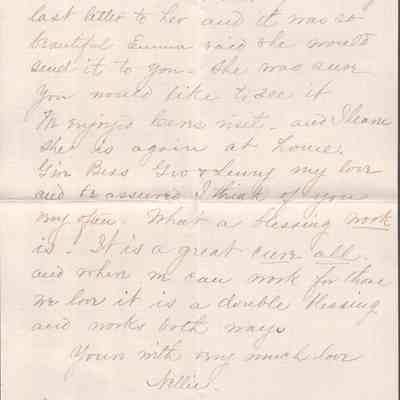 last letter to her and it was so
beautiful Emma said she would
send it to you. She was sure
you would like to see it
We enjoyed visit. and I have
she is again at home.
Give Bess Geo & my love
and be assured I think of you
very often. What a blessing work
is! It is a great cure all.
and when we can work for those
we love it is a double blessing
and works both ways
Yours with very much love
Nellie.